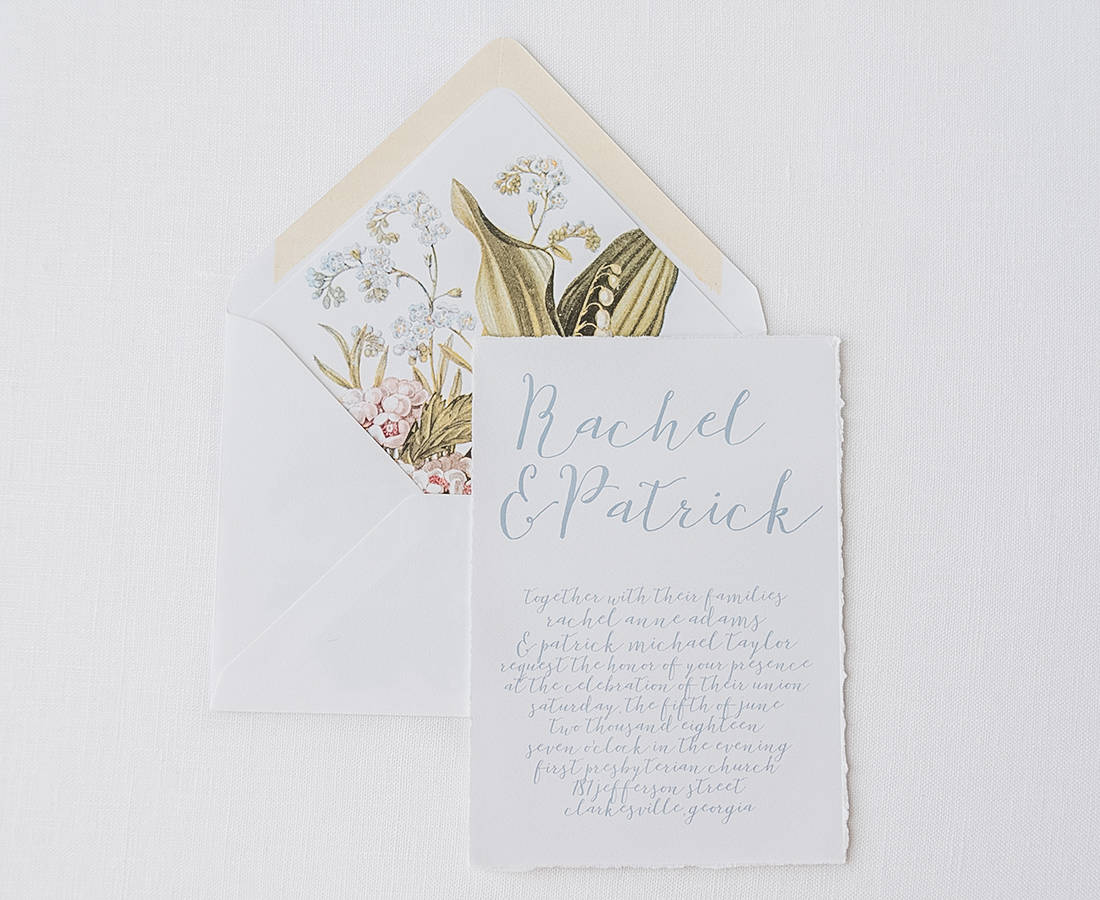 Rachel
& Patrick
together with their families
rachel anne adams
& patrick michael taylor
request the honor of your presence
at the celebration of their union
saturday, the fifth of june
two thousand eighteen
seven o'clock in the evening
first presbyterian church
181 jefferson street
clarkesville, georgia